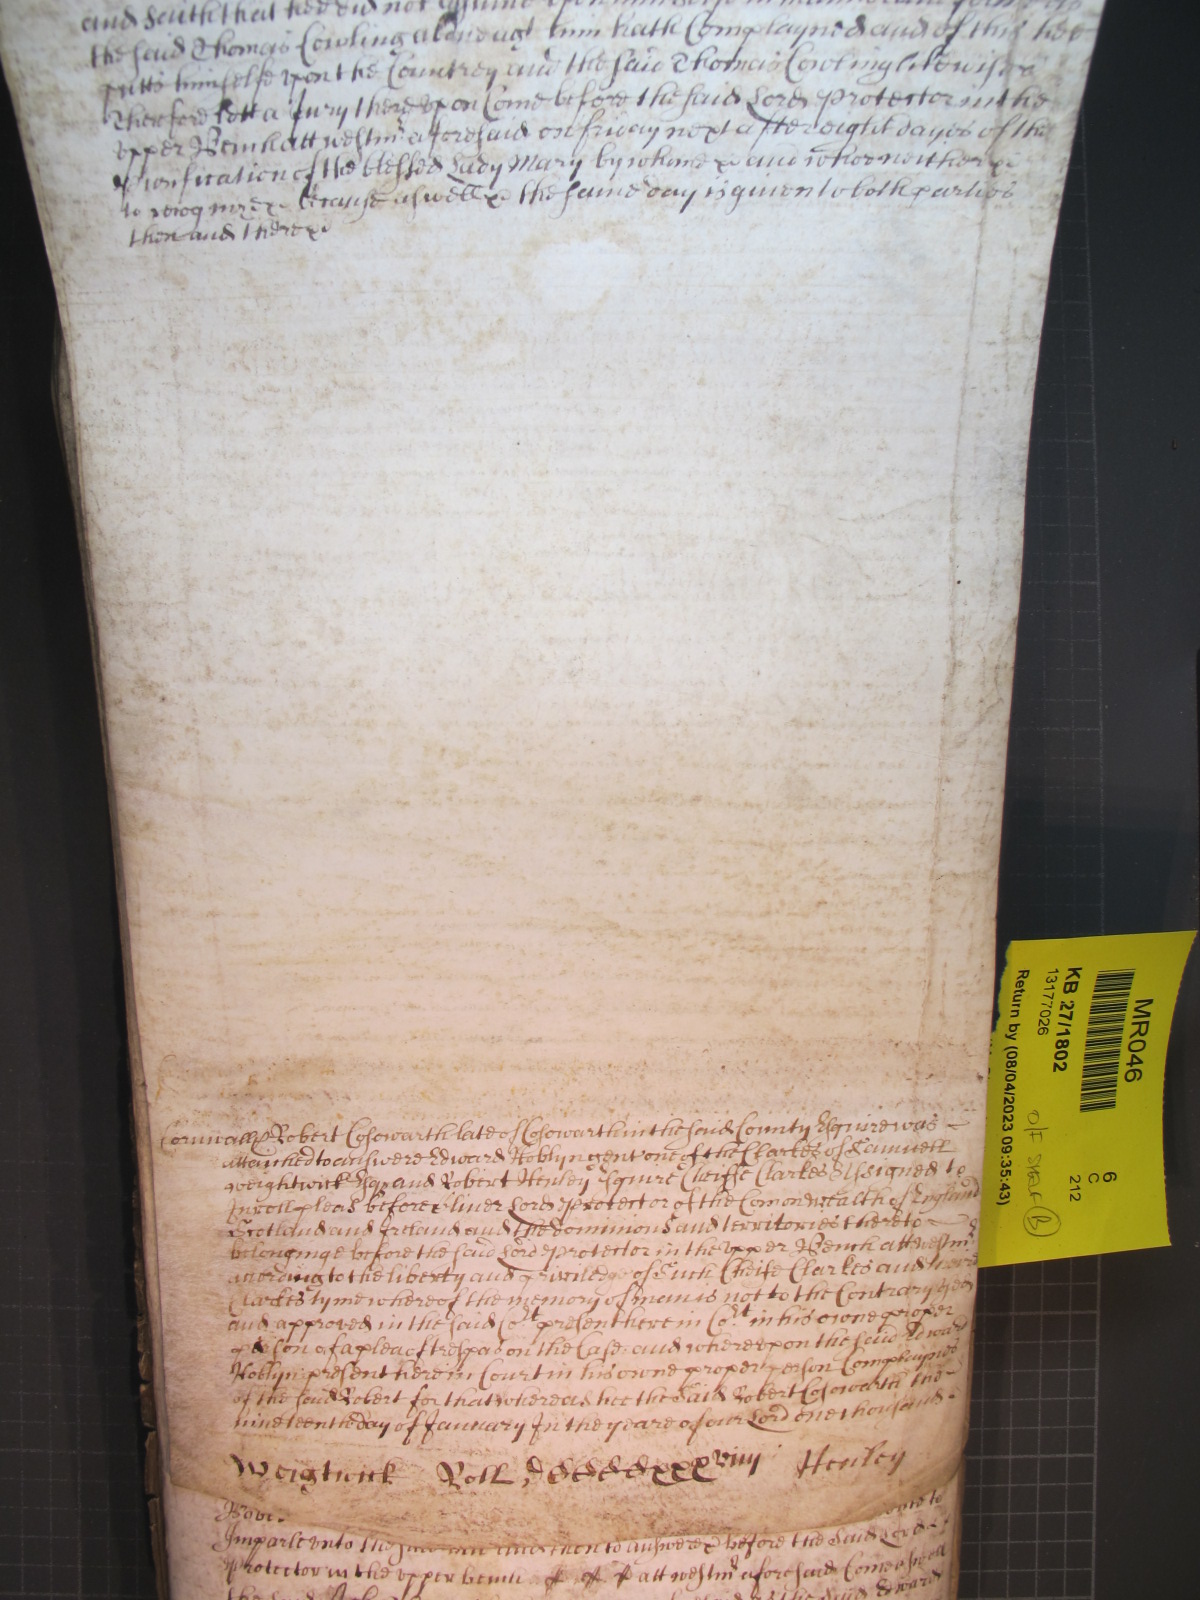 and saith that hee did not assume upon himselfe in manner and forme as
the said Thomas Cowling above agt him hath Complayned and of this hee
putts himselfe upon the Countrey and the said Thomas Cowling likewise
Therefore lett a Jury thereupon Come before the said Lord Protector in the
upper Bench att Westmr aforesaid on friday next after eight dayes of the
Purification of the blessed Lady Mary by whome and who neither
to recognize because aswell the same day is given to both parties
then and there
Cornwall Robert Cosowarth late of Cosowarth in the said County Esquire was
attached to answere Edward Hoblyn gent one of the Clarkes of Samuell
Weightwick Esqr and Robert Henley Esquire Cheiffe Clarkes Assigned to
Inroll pleas before Oliver Lord Protector of the Comonwealth of England
Scotland and Ireland and the dominions and territories thereto
belonginge before the said Lord Protector in the upper Bench att Westmr
according to the liberty and priviledge of Such Cheife Clarkes and
Clarkes tyme whereof the memory of man is not to the Contrary used
and approved in the said Cort present here in Cort in his owne proper
person of a plea of trespas on the Case and whereupon the said Edward
Hoblyn present here in Court in his owne proper person Complaynes
of the said Robert for that whereas hee the Said Robert Cosowarth the
nineteenth day of January In the yeare of our Lord one thousand
Weigtwick Roll Henley
Imparle unto the and then to answere before the Said Lord
Protector in the upper bench att Westmr aforesaid Comes as well
the said the said Edward
MR046
KB 27/1802
13177026
Return by (08/04/2023 09:35:43)
6
C
212
O/F SHELF B